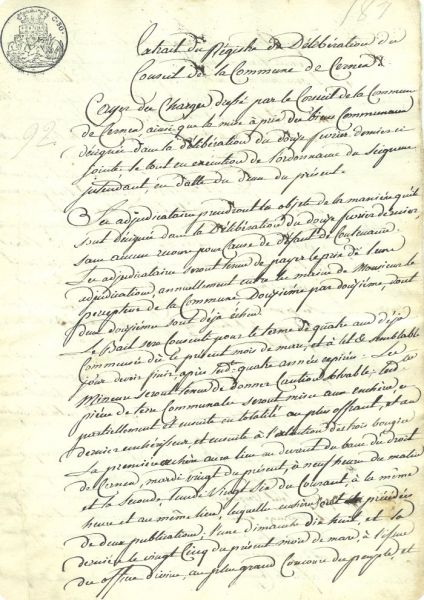 187
92
Extrait du Registre de Délibération du
Conseil de la Commune de Cernex
Cayer des Charges dressé par le Conseil de la Commune
de Cernex ainsi que la mise à prix des biens Communaux
désignés dans la délibération du douze fevrier dernier ci
jointe, le tout en exécution de l'ordonnance du Seigneur
intendant en datte du deux du présent.
Les adjudicataires prendront les objets de la manière qu'ils
sont désignés dans la délibération du douze fevrier dernier,
sans aucun recours pour Cause de défaut de Contenance.
Les adjudicataires seront tenus de payer le prix de leurs
adjudications, annuellement entre les mains de Monsieur le
percepteur de la Commune, Douzième par douzième, dont
deux douzièmes sont déjà échus.
Le Bail sera Consenti pour le terme de quatre ans déjà
Commencés dès le présent mois de mars, et à tel & semblable
jour devoir finir après quatre années expirées. Les
Mineurs seront tenus de donner Caution Solvable. Les
pièces de terre Communales seront mises aux enchères
partiellement et ensuite en totalité au plus offrant, et au
dernier enchérisseur et ensuite à l'extinction des trois bougies
La première enchère aura lieu au devant du banc du droit
de Cernex, mardi vingt du présent, à neuf heures du matin
et la seconde, lundi vingt six du Courant, à la même
heure et au même lieu, lesquelles enchères seront précédées
de deux publications; l'une dimanche dix huit, et la
dernière le vingt Cinq du présent mois de mars, à l'issue
des offices divins, au plus grand Concours du peuple, et